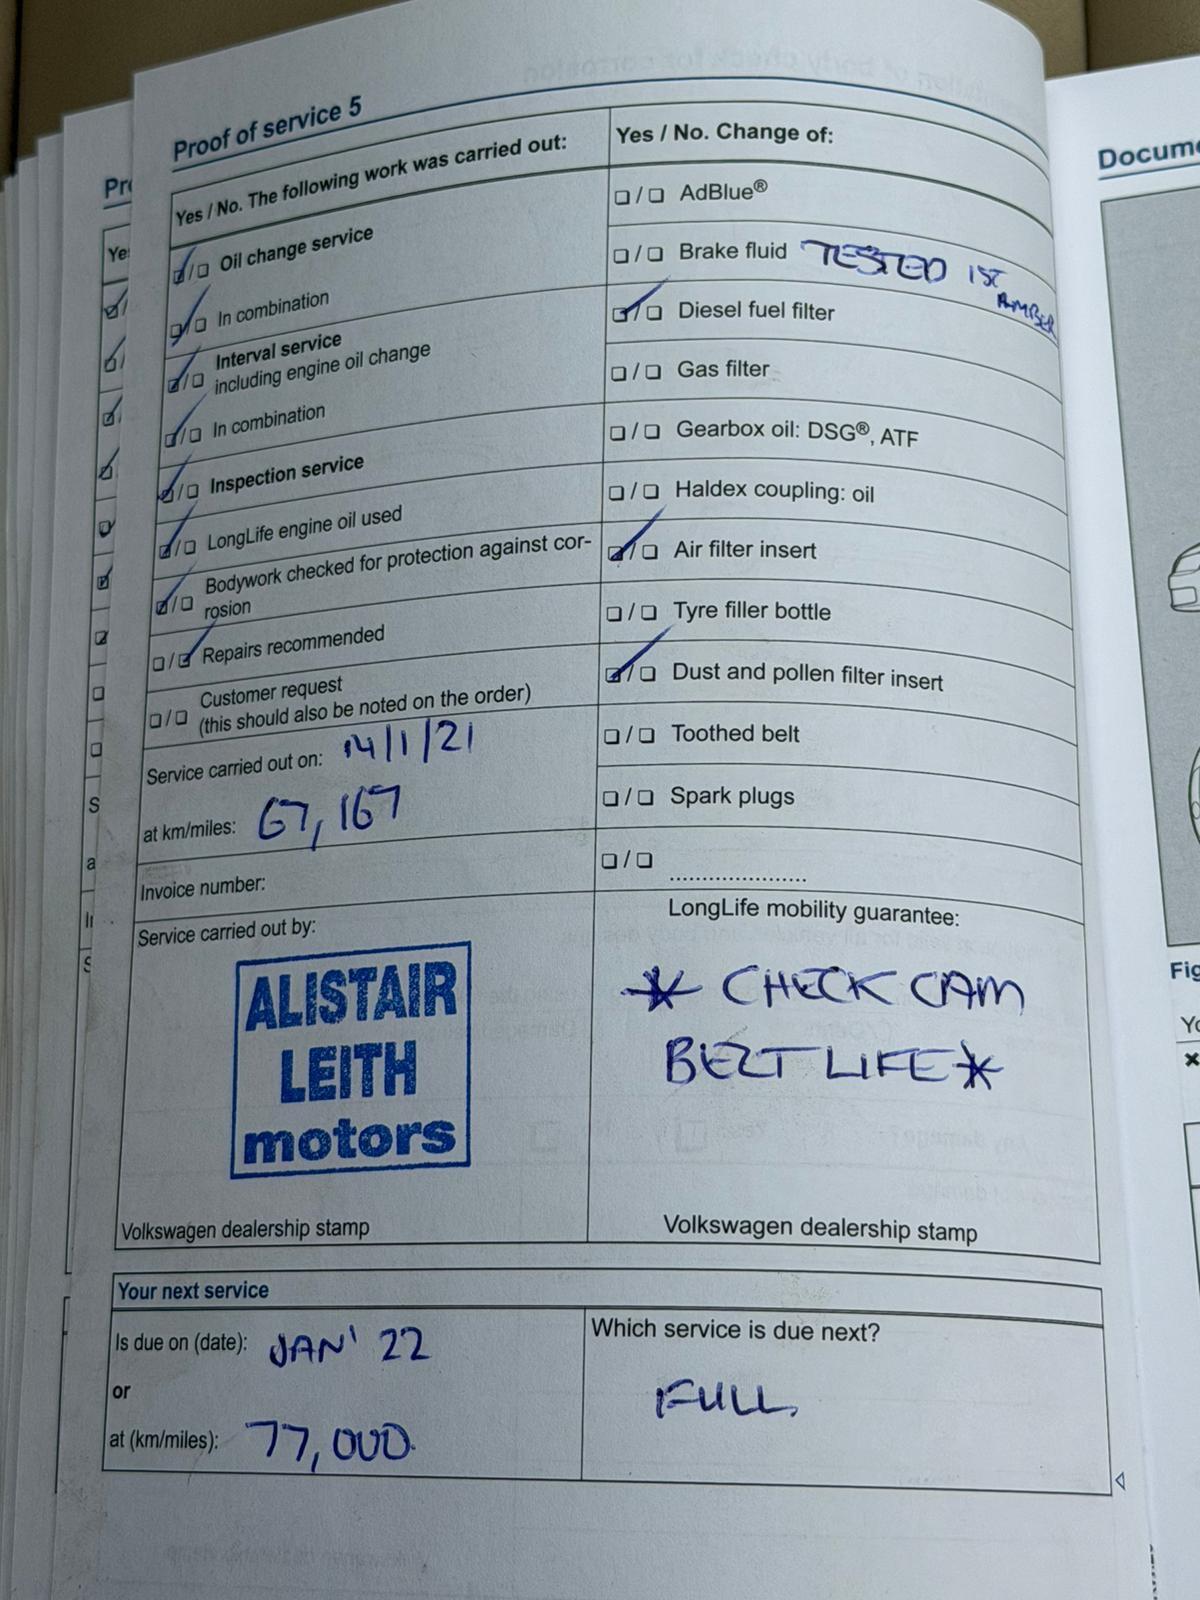 Proof of service 5
Yes / No. The following work was carried out:
Oil change service
In combination
Interval service
including engine oil change
In combination
Inspection service
LongLife engine oil used
Bodywork checked for protection against cor-
rosion
Repairs recommended
Customer request
(this should also be noted on the order)
Service carried out on: 14/1/21
at km/miles: 67,167
Invoice number:
Service carried out by:
ALISTAIR
LEITH
motors
Volkswagen dealership stamp
Yes / No. Change of:
AdBlue®
Brake fluid TESTED 1ST
AMBER
Diesel fuel filter
Gas filter
Gearbox oil: DSG®, ATF
Haldex coupling: oil
Air filter insert
Tyre filler bottle
Dust and pollen filter insert
Toothed belt
Spark plugs
....................
LongLife mobility guarantee:
* CHECK CAM
BELT LIFE *
Volkswagen dealership stamp
Your next service
Is due on (date): JAN' 22
or
at (km/miles): 77,000
Which service is due next?
FULL
Docume
Fig
Yo
Pro
Ye